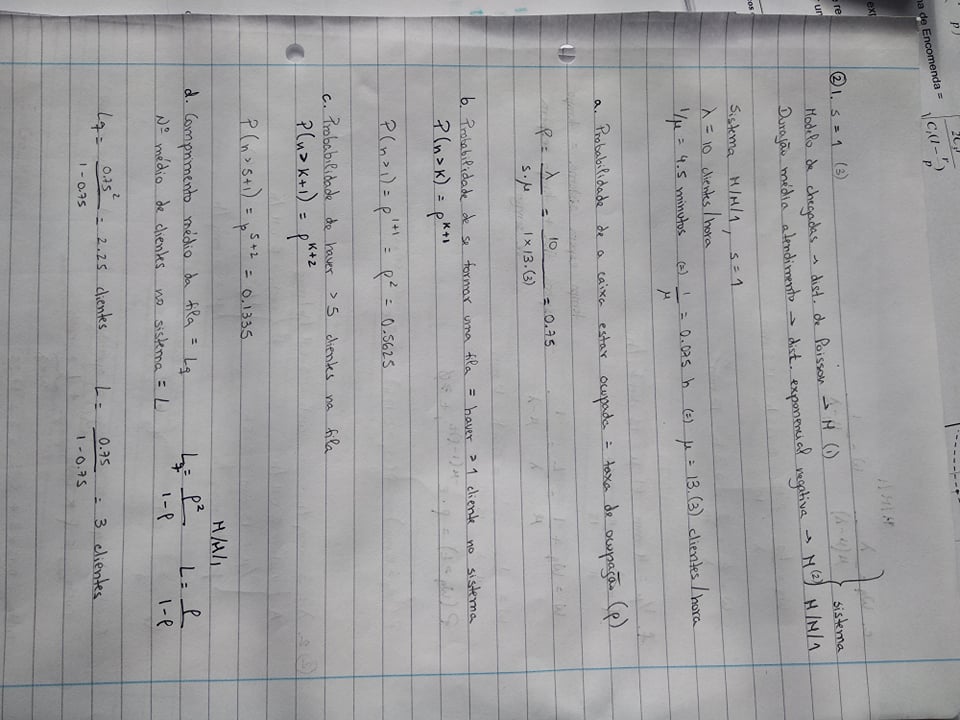 na de Encomenda = √(2C₃r / C₁(1-r/p))
② 1. s = 1 (3)
Modelo de chegadas → dist. de Poisson → M (1)
Duração média atendimento → dist. exponencial negativa → M (2)
} sistema M/M/1
Sistema M/M/1, s = 1
λ = 10 clientes/hora
1/μ = 4.5 minutos (=) 1/μ = 0.075 h (=) μ = 13.(3) clientes/hora
a. Probabilidade de a caixa estar ocupada = taxa de ocupação (ρ)
ρ = λ/(s.μ) = 10/(1×13.(3)) = 0.75
b. Probabilidade de se formar uma fila = haver > 1 cliente no sistema
P(n>K) = ρ^(K+1)
P(n>1) = ρ^(1+1) = ρ² = 0.5625
c. Probabilidade de haver > 5 clientes na fila
P(n>K+1) = ρ^(K+2)
P(n>5+1) = ρ^(5+2) = 0.1335
M/M/1
d. Comprimento médio da fila = Lq Lq = ρ²/(1-ρ) L = ρ/(1-ρ)
Nº médio de clientes no sistema = L
Lq = 0.75²/(1-0.75) = 2.25 clientes L = 0.75/(1-0.75) = 3 clientes